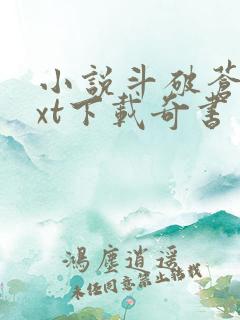 小說斗破蒼
xt下載奇書
鴻塵逍遥
未经同意禁止转载